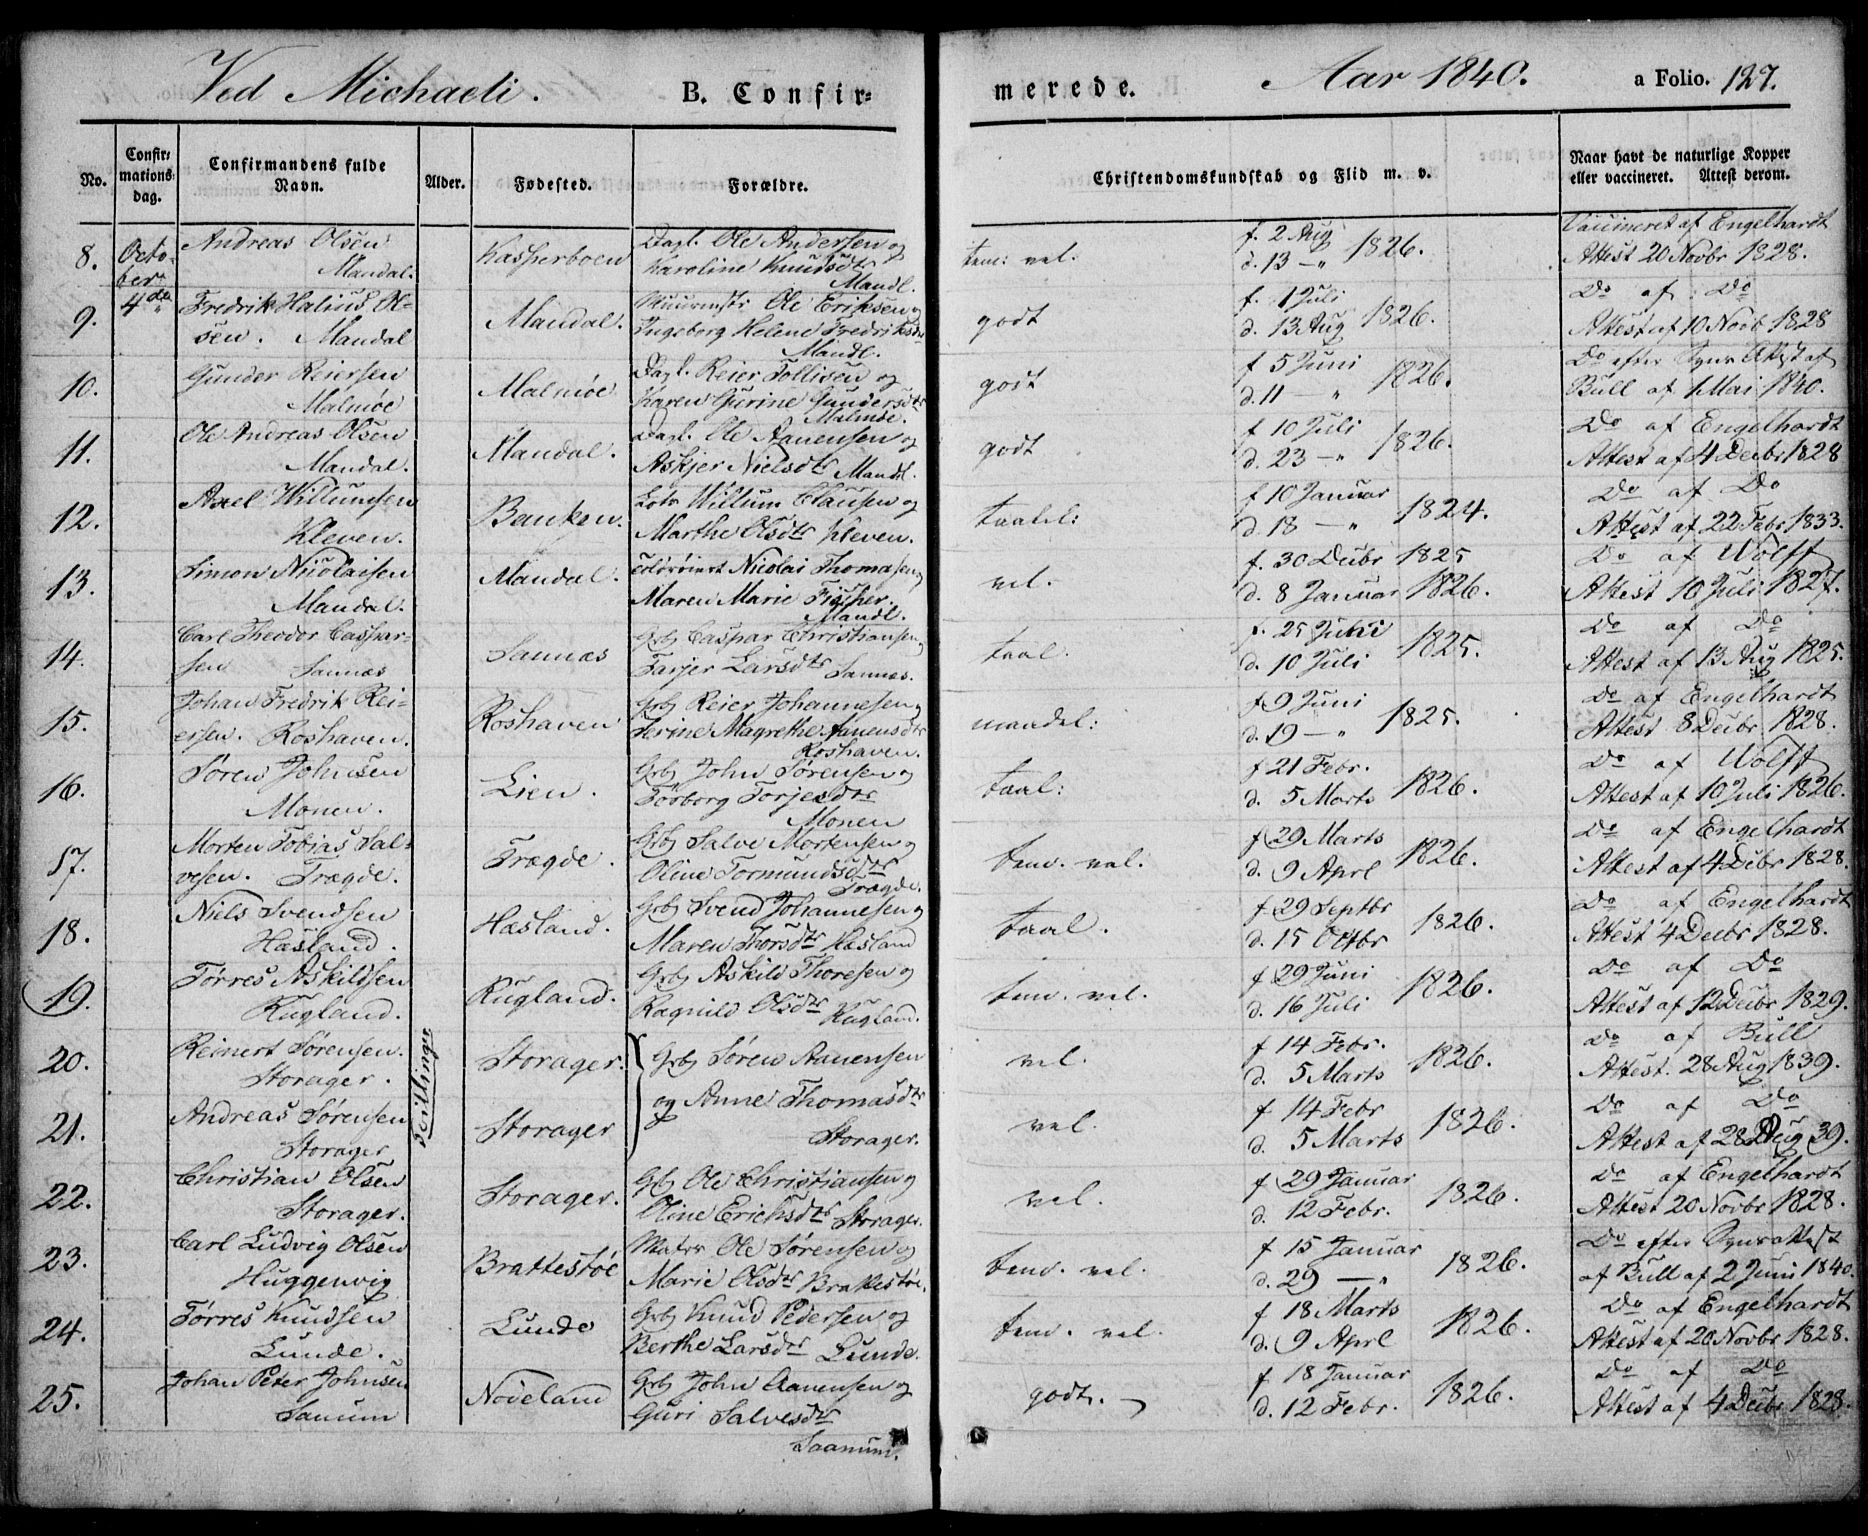 Ved Michaeli. B. Confirmerede. Aar 1840. a Folio. 127.
No. Confirmations-dag. Confirmandens fulde Navn. Alder. Fødested. Forældre. Christendomskundskab og Flid m. v. Naar havt de naturlige Kopper eller vaccineret. Attest derom.
8. October 4de Andreas Olsen Mandal. Kasperboen Dagl. Ole Andersen og Karoline Knudsdtr Mandl. tem: vel. f. 2 Aug d. 13 —" 1826. Vaccineret af Engelhardt Attest 20 Novbr 1828.
9. Fredrik Halius Olsen. Mandal Mandal. Muurmstr Ole Eriksen og Ingeborg Helene Fredriksdtr Mandl. godt f. 1 Juli d. 13 Aug 1826. Do af Do Attest af 10 Novb 1828
10. Gunder Reiersen Malmøe Malmøe Dagl. Reier Tollisen og Karen Gurine Gundersdtr Malmøe. godt f 5 Juni d. 11 —" 1826. Do efter Syns Attest af Bull af 1 Mai 1840.
11. Ole Andreas Olsen Mandal. Mandal. Dagl. Ole Aanensen og Askjer Nielsdtr Mandl. godt f 10 Juli d. 23 —" 1826. Do af Engelhardt Attest af 4 Decbr 1828
12. Axel Willumsen Kleven. Banken. Lots Willum Clausen og Marthe Olsdtr Kleven. taalel: f 10 Januar d. 18 —" 1824. Do af Do Attest af 22 Febr 1833.
13. Simon Nicolaisen Mandal. Mandal. Nicolai Thomasen og Maren Marie Fischer. Mandl. vel. f. 30 Decbr 1825 d. 8 Januar 1826. Do af Wolff Attest 10 Juli 1827.
14. Carl Theodor Casparsen Sannæs Sannæs Grbr Caspar Christiansen og Tarjer Larsdtr Sannæs. taal. f. 25 d. 10 Juli 1825. Do af Do Attest af 13 Aug 1825.
15. Johan Fredrik Reiersen. Roshaven. Roshaven Grbr Reier Johannesen og Serine Magrethe Aanensdtr Roshaven. maadel: f 9 Juni d. 19 —" 1825. Do af Engelhardt Attest 8 Decbr 1828.
16. Søren Johnsen Monen. Lien. Grbr John Sørensen og Tørborg Torjesdtr Monen taal: f 21 Febr. d. 5 Marts 1826. Do af Wolff Attest af 10 Juli 1826.
17. Morten Tobias Salvesen. Trægde. Trægde. Grbr Salve Mortensen og Oline Tormundsdtr Trægde. tem. vel. f 29 Marts d. 9 Aprl 1826. Do af Engelhardt Attest af 4 Debr 1828.
18. Niels Svendsen Hæsland. Hæsland. Grbr Svend Johannesen og Maren Thorsdtr Hæsland taal. f 29 Septbr d. 15 Octbr 1826. Do af Engelhardt Attest 4 Decbr 1828.
19. Tørres Askildsen Kugland. Kugland. Grbr Askild Thoresen og Ragnild Olsdtr Kugland. tem. vel. f 29 Juni d. 16 Juli 1826. Do af Do Attest af 12 Decbr 1829.
20. Reinert Sørensen. Storager. Tvillinger Storager. Grbr Søren Aanensen og Anne Thomasdtr Storager. vel. f 14 Febr. d. 5 Marts 1826. Do af Bull Attest. 28 Aug 1839.
21. Andreas Sørensen Storager Storager vel. f 14 Febr d. 5 Marts 1826. Do af Do Attest af 28 Aug 39.
22. Christian Olsen Storager. Storager. Grbr Ole Christiansen og Oline Ericksdtr Storager. vel. f 29 Januar d. 12 Febr. 1826. Do af Engelhardt Attest 20 Novbr 1828.
23. Carl Ludvig Olsen Huggenvig Brattestøe Matrs Ole Sørensen og Marie Olsdtr Brattestøe. tem. vel. f 15 Januar d. 29 —" 1826. Do efter Synsattest af Bull af 2 Juni 1840.
24. Tørres Knudsen Lunde. Lunde Grbr Knud Pedersen og Berthe Larsdtr Lunde. tem. vel. f 18 Marts d. 9 Aprl 1826. Do af Engelhardt Attest af 20 Novbr 1828.
25. Johan Peter Johnsen Sanum Nodeland Grbr John Aanensen og Guri Salvesdtr Saanum. godt. f 18 Januar d. 12 Febr. 1826. Do af Do Attest af 4 Decbr 1828.